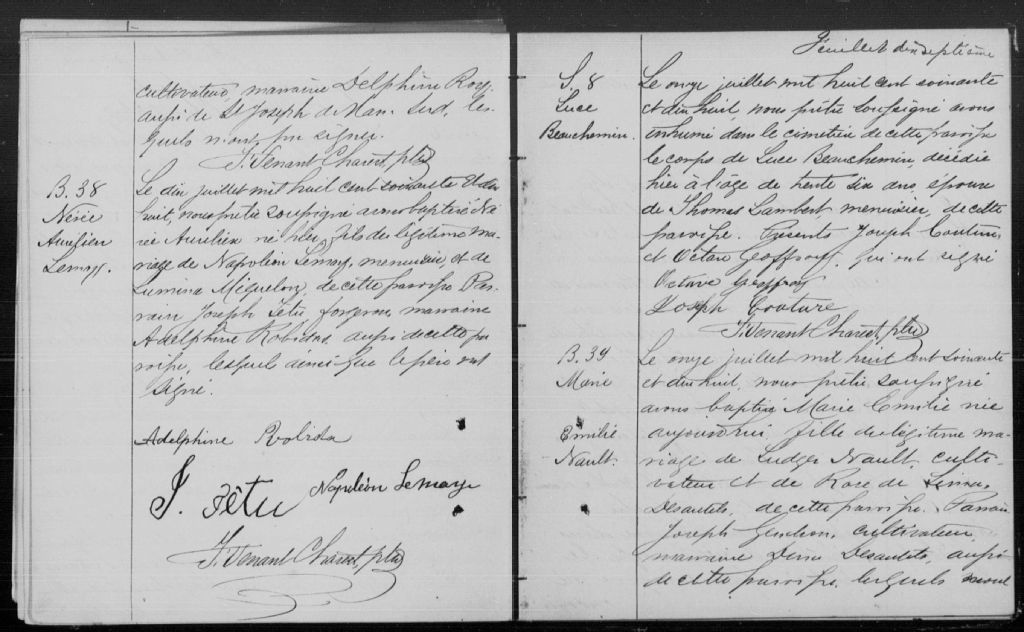 cultivateur, marraine Delphine Roy,
aussi de St Joseph de Ham Sud, les-
quels n'ont su signer.
J. Venant Charest, ptre
B. 38
Nérée
Aurélien
Lemay.
Le dix juillet mil huit cent soixante et dix
huit, nous prêtre soussigné avons baptisé Né
rée Aurélien né hier, fils du légitime ma-
riage de Napoléon Lemay, menuisier, et de
Lumina Miquelon, de cette paroisse Par-
rain Joseph Fêtu forgeron, marraine
Adelphine Robidas, aussi de cette pa
roisse, lesquels ainsi que le père ont
signé.
Adelphine Robida
J. Fêtu Napoléon Lemaye
J. Venant Charest, ptre
Feuillet dixseptième
S. 8
Luce
Beauchemin.
Le onze juillet mil huit cent soixante
et dix huit, nous prêtre soussigné avons
inhumé dans le cimetière de cette paroisse
le corps de Luce Beauchemin, décédée
hier à l'âge de trente six ans, épouse
de Thomas Lambert, menuisier, de cette
paroisse. Présents Joseph Couture
et Octave Geoffroy, qui ont signé
Octave Geoffroy
Joseph Couture
J. Venant Charest, ptre
B. 39
Marie
Emilie
Nault.
Le onze juillet mil huit cent soixante
et dix huit, nous prêtre soussigné
avons baptisé Marie Emilie née
aujourd'hui fille du légitime ma-
riage de Ludger Nault, culti-
vateur et de Rose de
Desautels, de cette paroisse. Parrain
Joseph cultivateur,
marraine Desautels, aussi
de cette paroisse, lesquels n'ont